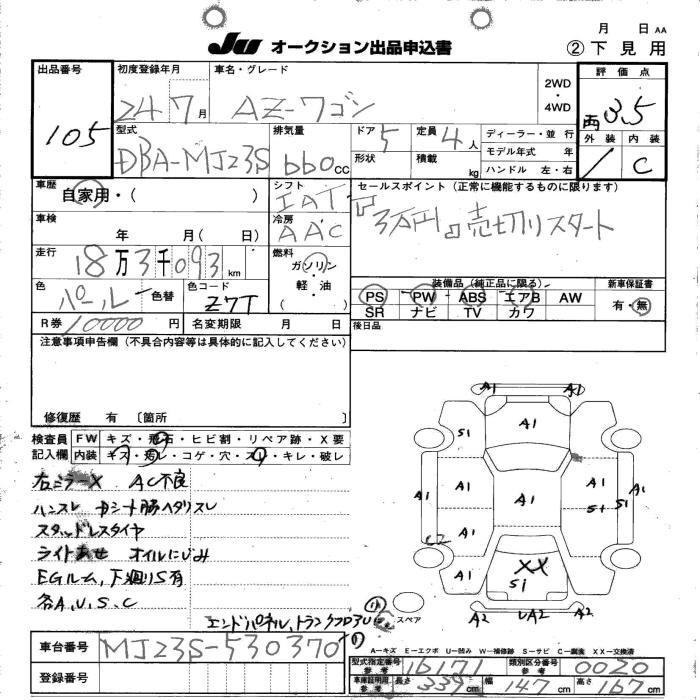 JU オークション出品申込書
月 日 AA
② 下見用
出品番号 105
初度登録年月 24 7月
車名・グレード AZ-ワゴン
2WD・4WD
評価点 両3.5
型式 DBA-MJ23S
排気量 660cc
ドア 5
形状
定員 4人
積載 kg
ディーラー・並 行
モデル年式 年
ハンドル 左・右
外装 内装 C
車歴 自家用・( )
シフト IAT
セールスポイント(正常に機能するものに限ります)
3万円 売切りスタート
車検 年 月(日)
冷房 AAC
走行 18万3千093km
燃料 ガソリン・軽油・( )
色 パール 色替
色コード Z7T
装備品(純正品に限る)
PS PW ABS エアB AW
SR ナビ TV カワ
新車保証書 有・無
R券 10000円
名変期限 月 日
後日品
注意事項申告欄(不具合内容等は具体的に記入してください)
修復歴 有 〔箇所 〕
検査員記入欄
FW キズ・飛石・ヒビ割・リペア跡・X要
内装 キズ・汚レ・コゲ・穴・スレ・キレ・破レ
右ミラーX AC不良
ハンスレ Dシート脇ヘタリスレ
スタッドレスタイヤ
ライトあせ オイルにじみ
EGルーム,下廻りS有
各A,U,S,C
エンドパネル,トランクフロアU
A1 A1
S1 A1
A1 A1 A1 A1 A1
S1
A1
C2
A1 XX
S1
A2 UA2 A2
小
スペア
車台番号 MJ23S-530370
登録番号
A-キズ E-エクボ U-凹み W-補修跡 S-サビ C-腐蝕 XX-交換済
型式指定番号 参考 16171
類別区分番号 参考 0020
車庫証明用 参考 長さ 339cm 幅 147cm 高さ 167cm